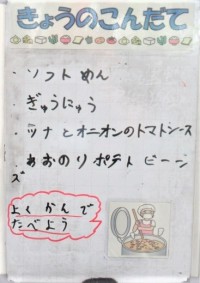 きょうのこんだて
・ソフトめん
・ぎゅうにゅう
・ツナとオニオンのトマトソース
・あおのりポテトビーン
ズ
よくかんで
たべよう